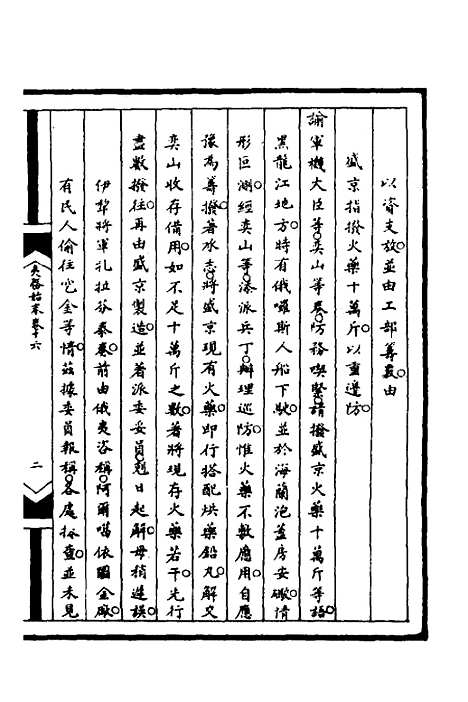 以資支放並由工部籌裁由
盛京指撥火藥十萬斤以重邊防
諭軍機大臣等奕山等奏防務喫緊請撥盛京火藥十萬斤等語
黑龍江地方時有俄囉斯人船下駛並於海蘭泡蓋房安礮情
形叵測經奕山等添派兵丁辦理巡防惟火藥不敷應用自應
豫為籌撥著承志將盛京現有火藥即行搭配烘藥鉛丸解交
奕山收存備用如不足十萬斤之數著將現存火藥若干先行
盡數撥往再由盛京製造並著派委妥員剋日起解毋稍遲誤
伊犁將軍札拉芬泰奏前由俄夷咨稱阿爾噶依圖金廠
有民人偷往挖金等情茲據委員報稱各處採查並未見
夷務始末卷十六
二